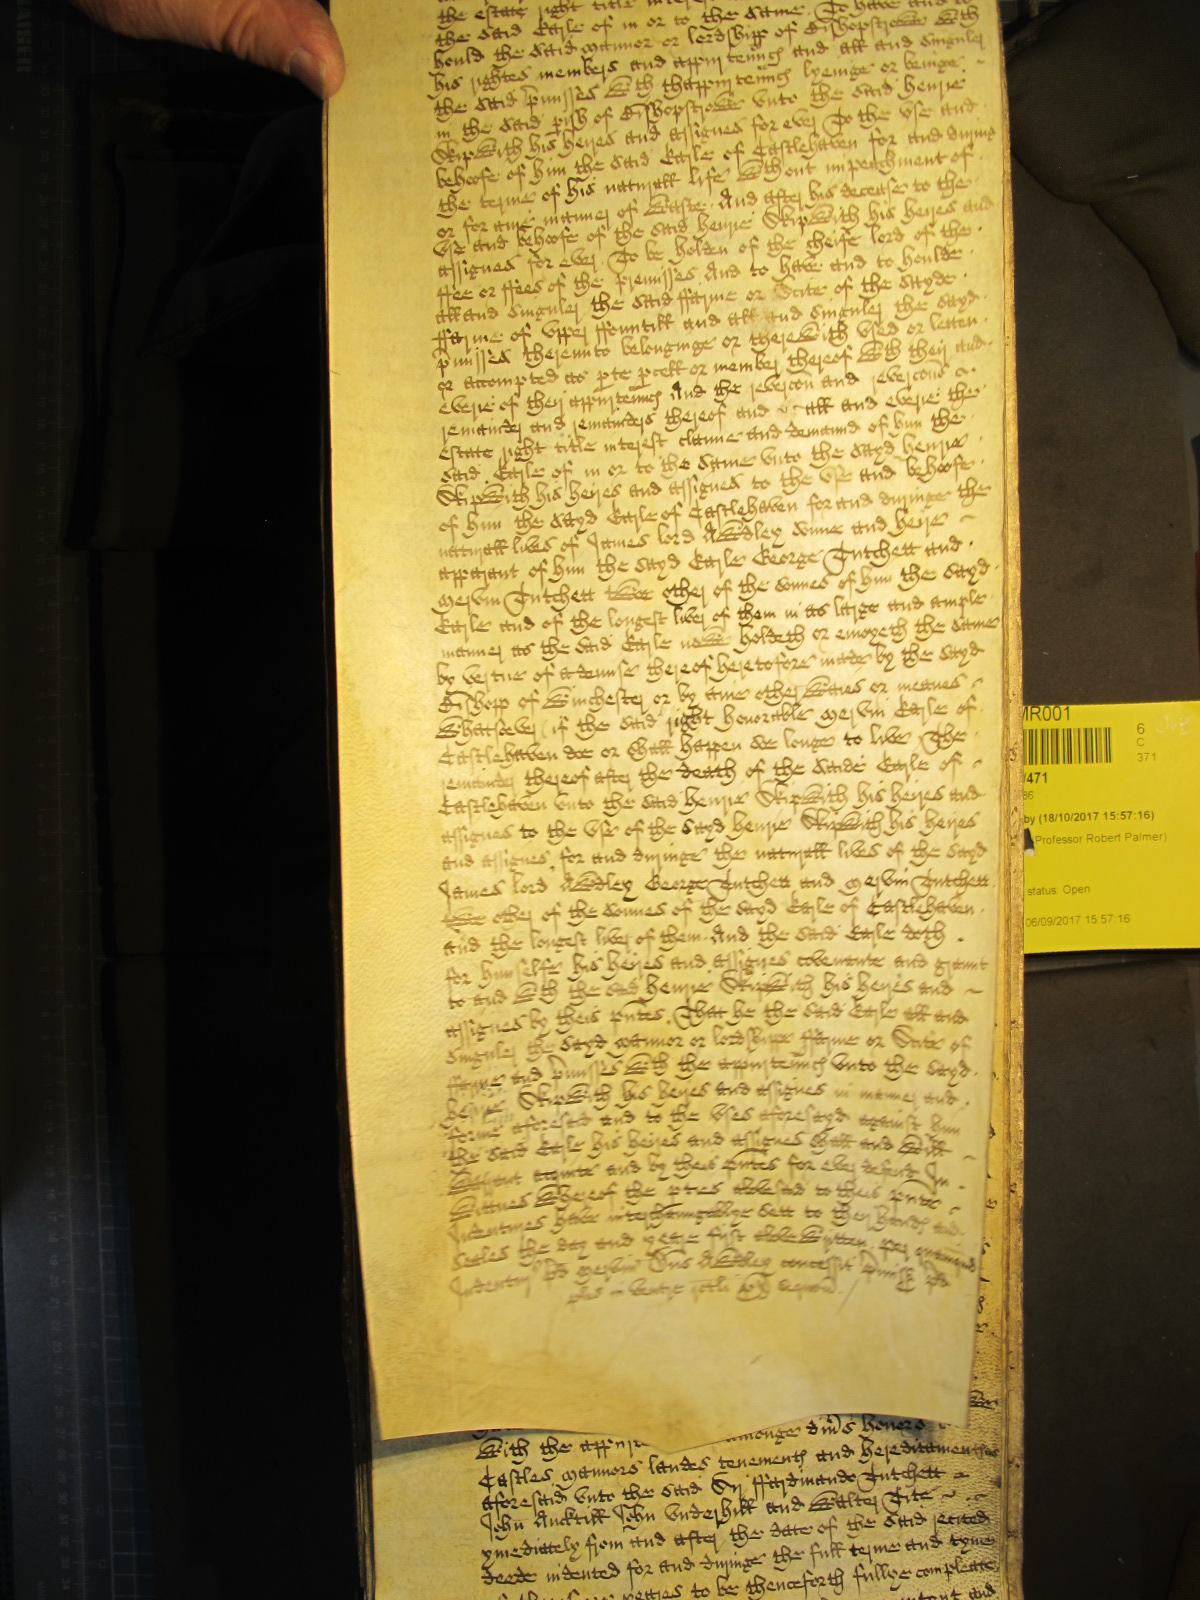 the estate right title interest
the said Earle of in or to the same. To have and to
hould the said mannor or lordshipp of Bishopstrowe wth
his rightes members and appurtenncs and all and singuler
the said pmisses wth thappurtenncs lyeinge or beinge
in the said pish of Bishopstrowe unto the said Henrie
Skipwith his heires and assignes for ever To the use and
behoofe of him the said Earle of Castlehaven for and during
the terme of his naturall life wthout impeachment of
or for anie manner of waste. And after his decease to the
use and behoofe of the said Henrie Skipwith his heires and
assignes for ever. To be holden of the cheife lord of the
ffee or ffees of the premisses And to have and to houlde
all and singuler the said ffarme or Scite of the sayde
ffarme of upper ffountill and all and singuler the sayd
pmisses thereunto belonginge or therewith used or letten
or accompted as pte pcell or member thereof wth their and
everie of their appurtenncs And the revercon and revercons
remainder and remainders thereof and all and everie the
estate right title interest clayme and demaund of him the
said Earle of in or to the same unto the sayd Henrie
Skipwith his heires and assignes to the use and behoofe
of him the sayd Earle of Castlehaven for and duringe the
naturall lives of James lord Awdley sonne and heire
apparant of him the sayd Earle George Tutchett and
Mervin Tutchett two other of the sonnes of him the sayd
Earle and of the longest liver of them in as large and ample
manner as the said Earle nowe holdeth or enioyeth the same
by vertue of a demise thereof heretofore made by the sayd
Bishopp of Winchester or by anie other waies or meanes
whatsoever if the said right honorable Mervin Earle of
Castlehaven doe or shall happen soe longe to live The
remainder thereof after the death of the saide Earle of
Castlehaven unto the said Henrie Skipwith his heires and
assignes to the use of the sayd Henrie Skipwith his heires
and assignes for and duringe the naturall lives of the sayd
James lord Awdley George Tutchett and Mervin Tutchett
two other of the sonnes of the sayd Earle of Castlehaven
and the longest liver of them. And the said Earle doth
for himselfe his heires and assignes covenante and graunt
to and wth the said Henrie Skipwith his heires and
assignes by theis pntes. That he the said Earle all and
singuler the sayd mannor or lordshipp ffarme or Scite of
ffarme and pmisses wth the appurtenncs unto the sayd
Henrie Skipwith his heires and assignes in manner and
forme aforesaid and to the uses aforesayd against him
the said Earle his heires and assignes shall and will
warrant acquite and by theis pntes for ever defend In
wittnes whereof the pties abovesaid to theis pnte
Indentures have interchangablye sett to their hands and
seales the day and yeare first above written. Per quamquid
Indentur pd Mervin Dns Awdley concessit
Castles mannors landes tenements and hereditaments
aforesaid unto the said Sr ffardinando Tutchett
John Ancktill John Underhill and Walter Tite
ymediately from and after the date of the said recited
deede indented for and duringe the full terme and tyme
to be thenceforth fullye compleate
MR001
6
C
371
/471
by (18/10/2017 15:57:16)
Professor Robert Palmer)
status: Open
06/09/2017 15:57:16